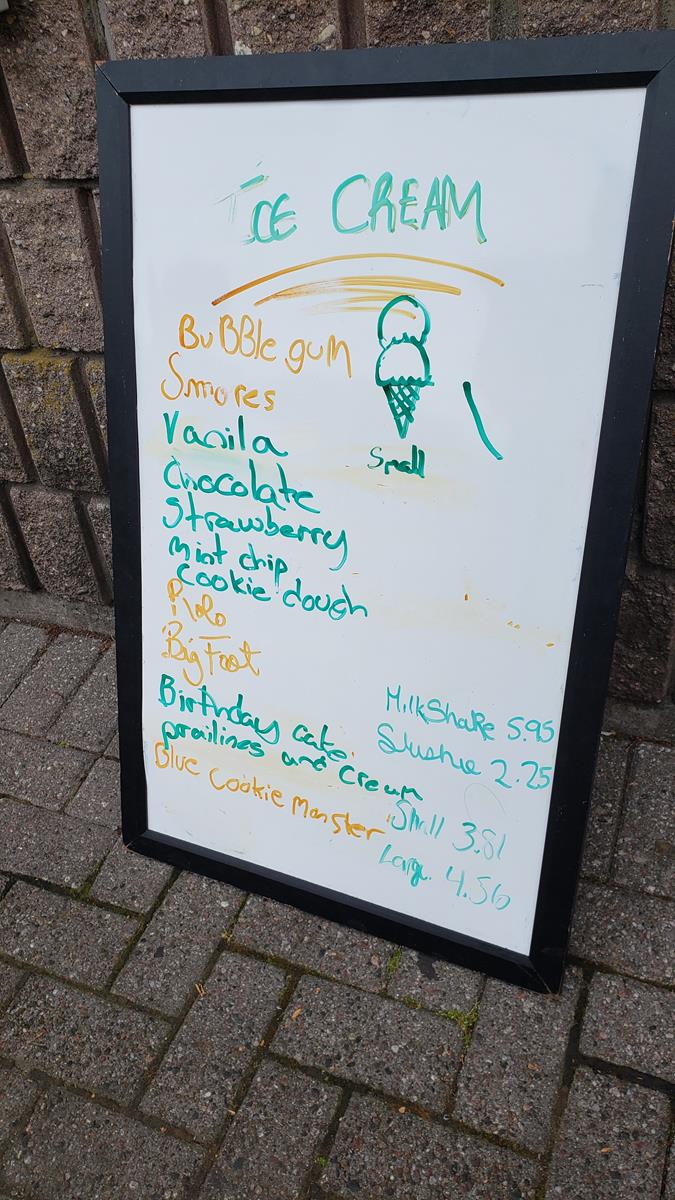 ICE CREAM
BuBBle gum
Smores
Vanila
Small
Chocolate
Strawberry
Mint chip
Cookie dough
Rolo
Big Foot
Birthday cake
prailines and Cream
Blue Cookie Monster
MilkShake 5.95
Slushie 2.25
Small 3.81
Large 4.56